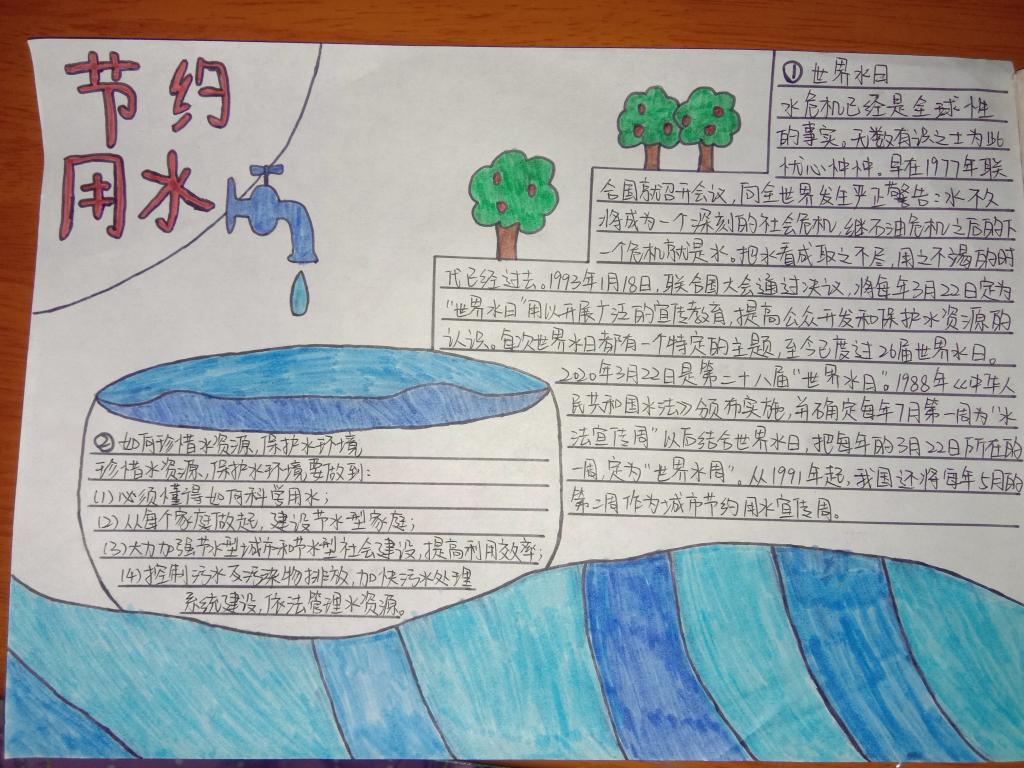 节约
用水
①世界水日
水危机已经是全球性
的事实。无数有识之士为此
忧心忡忡。早在1977年联
合国就召开会议,向全世界发生严正警告:水不久
将成为一个深刻的社会危机,继石油危机之后的下
一个危机就是水。把水看成取之不尽,用之不竭的时
代已经过去。1993年1月18日,联合国大会通过决议,将每年3月22日定为
“世界水日”用以开展广泛的宣传教育,提高公众开发和保护水资源的
认识。每次世界水日都有一个特定的主题,至今已度过26届世界水日。
2020年3月22日是第二十八届“世界水日”。1988年《中华人
民共和国水法》颁布实施,并确定每年7月第一周为“水
法宣传周”以后结合世界水日,把每年的3月22日所在的
一周,定为“世界水周”。从1991年起,我国还将每年5月的
第二周作为城市节约用水宣传周。
②如何珍惜水资源,保护水环境
珍惜水资源,保护水环境要做到:
(1)必须懂得如何科学用水;
(2)从每个家庭做起,建设节水型家庭;
(3)大力加强节水型城市和节水型社会建设,提高利用效率;
(4)控制污水及污染物排放,加快污水处理
系统建设,依法管理水资源。